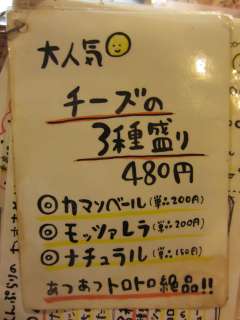 大人気
チーズの
3種盛り
480円
◎カマンベール(単品200円)
◎モッツァレラ(単品200円)
◎ナチュラル(単品150円)
あつあつトロトロ絶品!!